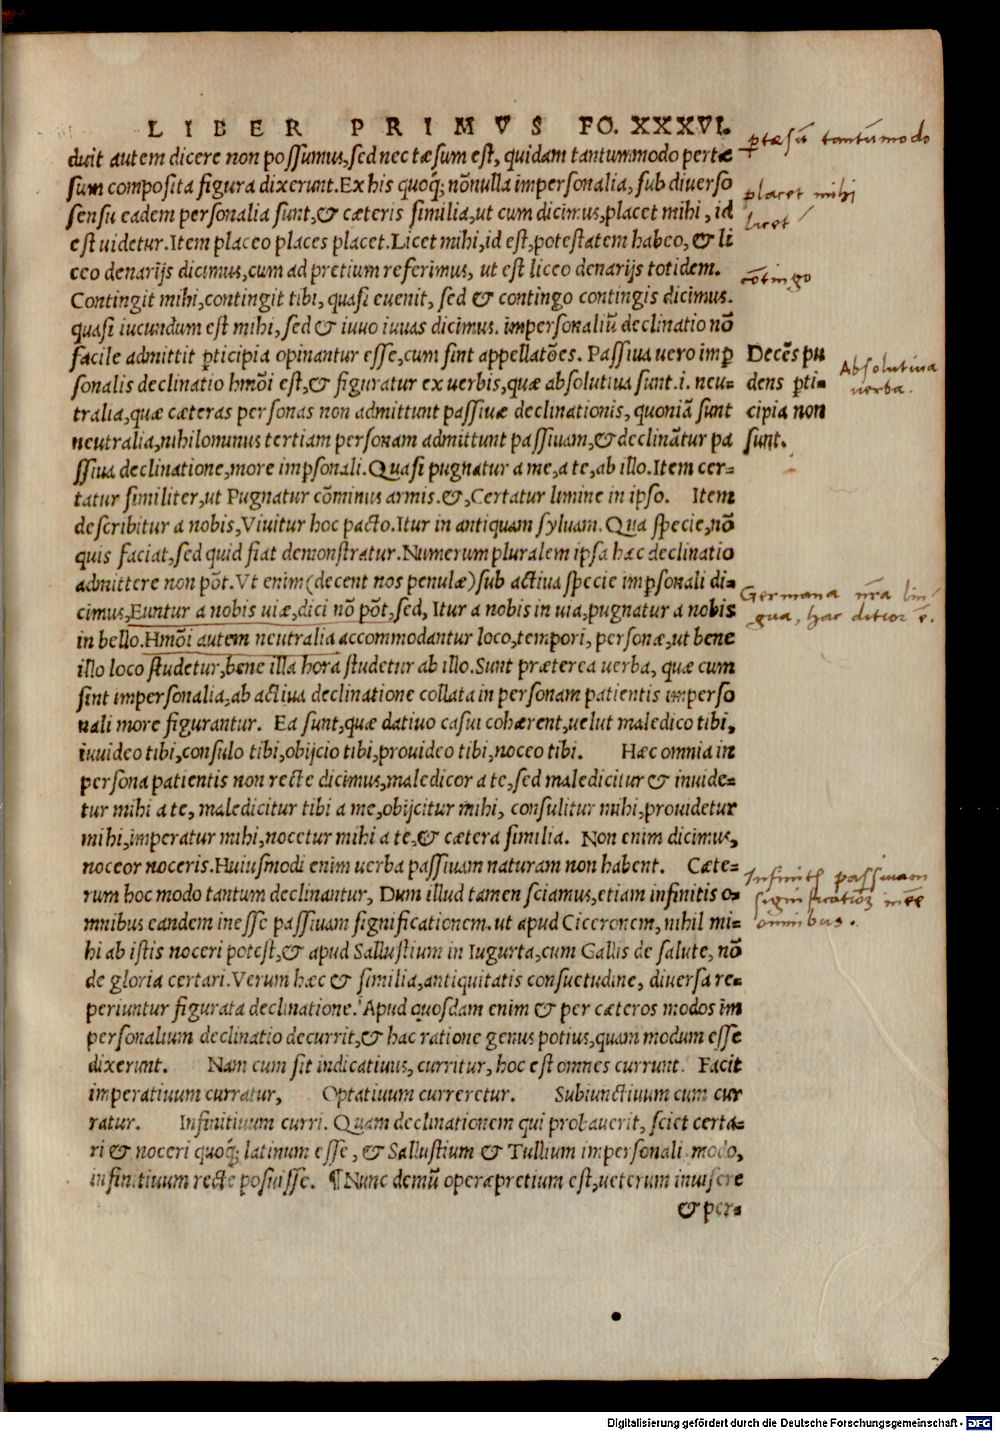 LIBER PRIMVS FO. XXXVI.
duit autem dicere non possumus, sed nec tæsum est, quidam tantummodo pertæ
sum composita figura dixerunt. Ex his quoq; nōnulla impersonalia, sub diuerso
sensu eadem personalia sunt, & cæteris similia, ut cum dicimus, placet mihi, id
est uidetur. Item placeo places placet. Licet mihi, id est, potestatem habeo, & li
ceo denarijs dicimus, cum ad pretium referimus, ut est liceo denarijs totidem.
Contingit mihi, contingit tibi, quasi euenit, sed & contingo contingis dicimus.
quasi iucundum est mihi, sed & iuuo iuuas dicimus. impersonaliū declinatio nō
facile admittit ꝑticipia opinantur esse, cum sint appellatōes. Passiua uero imꝑ
sonalis declinatio hmōi est, & figuratur ex uerbis, quæ absolutiua sunt .i. neu-
tralia, quæ cæteras personas non admittunt passiuæ declinationis, quoniā sunt
neutralia, nihilominus tertiam personam admittunt passiuam, & declināntur pa
ssiua declinatione, more impsonali. Quasi pugnatur a me, a te, ab illo. Item cer-
tatur similiter, ut Pugnatur cōminus armis. &, Certatur limine in ipso. Item
describitur a nobis, Viuitur hoc pacto. Itur in antiquam syluam. Qua specie, nō
quis faciat, sed quid fiat demonstratur. Numerum pluralem ipsa hæc declinatio
admittere non pōt. Vt enim (decent nos penulæ) sub actiua specie impsonali di-
cimus, Euntur a nobis uiæ, dici nō pōt, sed, Itur a nobis in uia, pugnatur a nobis
in bello. Hmōi autem neutralia accommodantur loco, tempori, personæ, ut bene
illo loco studetur, bene illa hora studetur ab illo. Sunt præterea uerba, quæ cum
sint impersonalia, ab actiua declinatione collata in personam patientis imperso
nali more figurantur. Ea sunt, quæ datiuo casui cohærent, uelut maledico tibi,
inuideo tibi, consulo tibi, obijcio tibi, prouideo tibi, noceo tibi. Hæc omnia in
persona patientis non recte dicimus, maledicor a te, sed maledicitur & inuide-
tur mihi a te, maledicitur tibi a me, obijcitur mihi, consulitur mihi, prouidetur
mihi, imperatur mihi, nocetur mihi a te, & cætera similia. Non enim dicimus,
noceor noceris. Huiusmodi enim uerba passiuam naturam non habent. Cæte-
rum hoc modo tantum declinantur, Dum illud tamen sciamus, etiam infinitis o-
mnibus eandem inesse passiuam significationem. ut apud Ciceronem, nihil mi-
hi ab istis noceri potest, & apud Sallustium in Iugurta, cum Gallis de salute, nō
de gloria certari. Verum hæc & similia, antiquitatis consuetudine, diuersa re-
periuntur figurata declinatione. Apud quosdam enim & per cæteros modos im
personalium declinatio decurrit, & hac ratione genus potius, quam modum esse
dixerunt. Nam cum sit indicatiuus, curritur, hoc est omnes currunt. Facit
imperatiuum curratur, Optatiuum curreretur. Subiunctiuum cum cur
ratur. Infinitiuum curri. Quam declinationem qui probauerit, sciet certa-
ri & noceri quoq; latinum esse, & Sallustium & Tullium impersonali modo,
infinitiuum recte posuisse. ¶ Nunc demū operæpretium est, ueterum inuisere
& per-
ꝑtæsū tantūmodo
placet mihi
licet
cōtingo
Decēs pu
dens ꝑti-
cipia non
sunt.
Absolutiua
uerba.
Germana nr̄a lin
gua, hac
passiuam
omnibus.
Digitalisierung gefördert durch die Deutsche Forschungsgemeinschaft - DFG